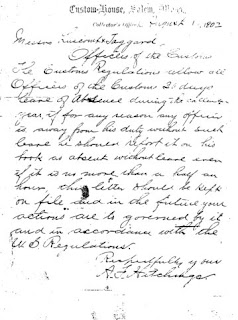 Custom-House, Salem, Mass.
Collector's Office,
August 1, 1902
Messrs
Officers of the Customs
The Customs Regulations allow all
Officers of the Customs days
leave of Absence during the
year if for any reason any officer
is away from his duty without such
leave he should report it on his
book as absent without leave even
if it is no more than a half an
hour, this letter should be kept
on file and in the future your
actions are to governed by it
and in accordance with the
U S Regulations.
Respectfully yours